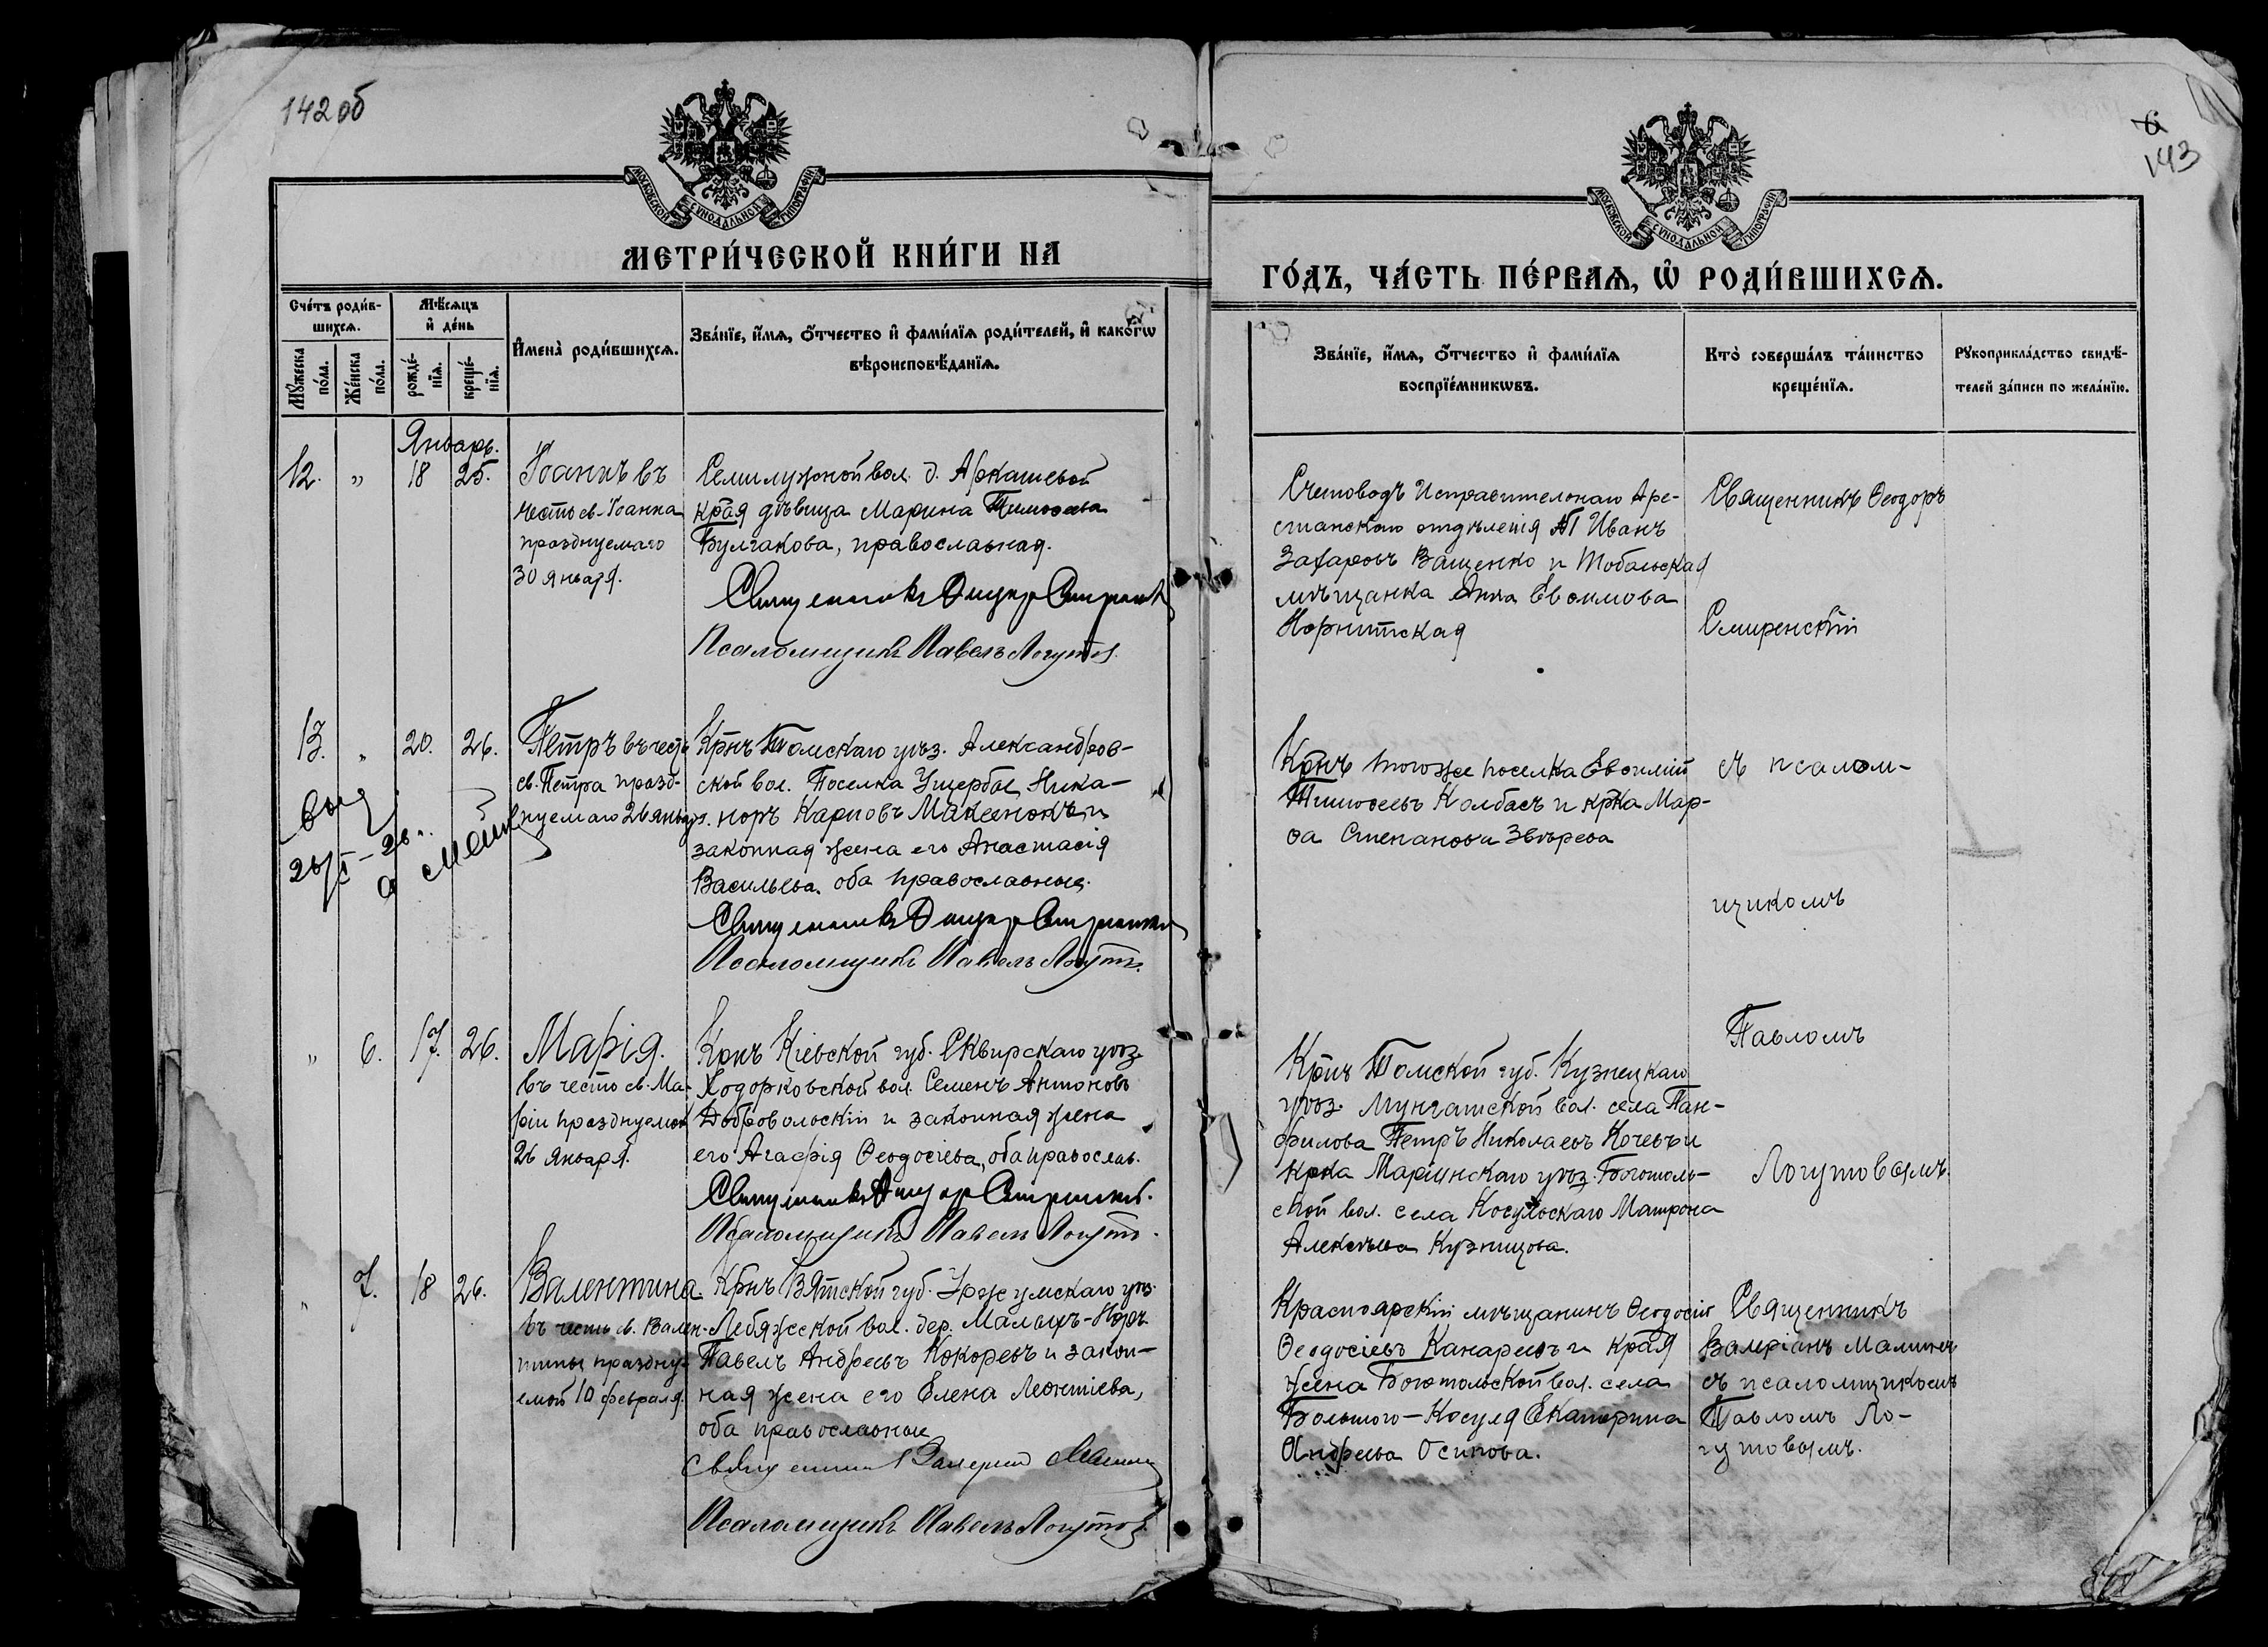 142 об
6
143
МОСКОВСКОЙ СѴНОДАЛЬНОЙ ТИПОГРАФІИ
МОСКОВСКОЙ СѴНОДАЛЬНОЙ ТИПОГРАФІИ
МЕТРИ́ЧЕСКОЙ КНИ́ГИ НА
ГО́ДЪ, ЧА́СТЬ ПЕ́РВАѦ, Ѽ РОДИ́ВШИХСѦ.
Сче́тъ роди́в-
шихсѧ.
Мꙋ́жеска
по́ла.
Же́нска
по́ла.
Мѣ́сѧцъ
и҆ де́нь
рожде́-
нїѧ.
креще́-
нїѧ.
И҆мена̀ роди́вшихсѧ.
Зва́нїе, и҆́мѧ, ѻ҆́тчество и҆ фами́лїѧ роди́телей, и҆ како́гѡ
вѣроисповѣ́данїѧ.
Зва́нїе, и҆́мѧ, ѻ҆́тчество и҆ фами́лїѧ
воспрїе́мникѡвъ.
Кто̀ соверша́лъ та́инство
креще́нїѧ.
Рꙋкоприкла́дство свидѣ́-
телей за́писи по жела́нїю.
Январь.
12. " 18 25.
Іоаннъ въ
честь св. Іоанна
празднуемаго
30 января.
Семилужной вол. д. Аркашевой
кр̃ая дѣвица Марина Тимоѳеева
Булгакова, православная.
Священникъ
Псаломщикъ Павелъ Логутов.
Счетоводъ Исправительнаго Аре-
стантскаго отдѣленія № 1 Иванъ
Захаровъ Ващенко и Тобольская
мѣщанка Анна Евѳимова
Корнитская
Священникъ Ѳеодоръ
Смиренскій
13. " 20. 26.
26/I - 26 г.
Петръ въ честь
св. Петра празд-
нуемаго 26 январ.
Кр̃нъ Томскаго уѣз. Александров-
ской вол. Поселка Ущерба Ника-
норъ Карповъ Макенокъ и
законная жена его Анастасія
Васильева. оба православные.
Священникъ
Псаломщикъ Павелъ Логутов.
Кр̃нъ того же поселка Евѳимій
Тимоѳеевъ Колбасъ и кр̃ка Мар-
ѳа Степанова Звѣрева
съ псалом-
щикомъ
" 6. 17. 26.
Марія.
въ честь св. Ма-
ріи празднуемой
26 января.
Кр̃нъ Кіевской губ. Сквирскаго уѣз.
Ходорковской вол. Семенъ Антоновъ
Добровольскій и законная жена
его Агафія Ѳеодосіева, оба правосл​ав.
Священникъ
Псаломщикъ Павелъ Логутов.
Кр̃нъ Томской губ. Кузнецкаго
уѣз. Мунгатской вол. села Пан-
филова Петръ Николаевъ Кочевъ и
кр̃ка Маріинскаго уѣз. Боготоль-
ской вол. села Косульскаго Матрона
Алексѣева Кузнецова.
Павломъ
Логутовымъ.
" 7. 18 26.
Валентина
въ честь св. Вален-
тины праздну-
емой 10 февраля.
Кр̃нъ Вятской губ. Уржумскаго уѣз.
Лебяжской вол. дер.
Павелъ Андреевъ Кокоревъ и закон-
ная жена его Елена Леонтіева,
оба православные
Священникъ Валеріан Малинин
Псаломщикъ Павелъ Логутов.
Красноярскій мѣщанинъ Ѳеодосій
Ѳеодосіевъ Канаревъ и кр̃ая
жена Боготольской вол. села
Большого-Косуля Екатерина
Андреева Осипова.
Священникъ
Валеріанъ Малинин
съ псаломщикомъ
Павломъ Ло-
гутовымъ.